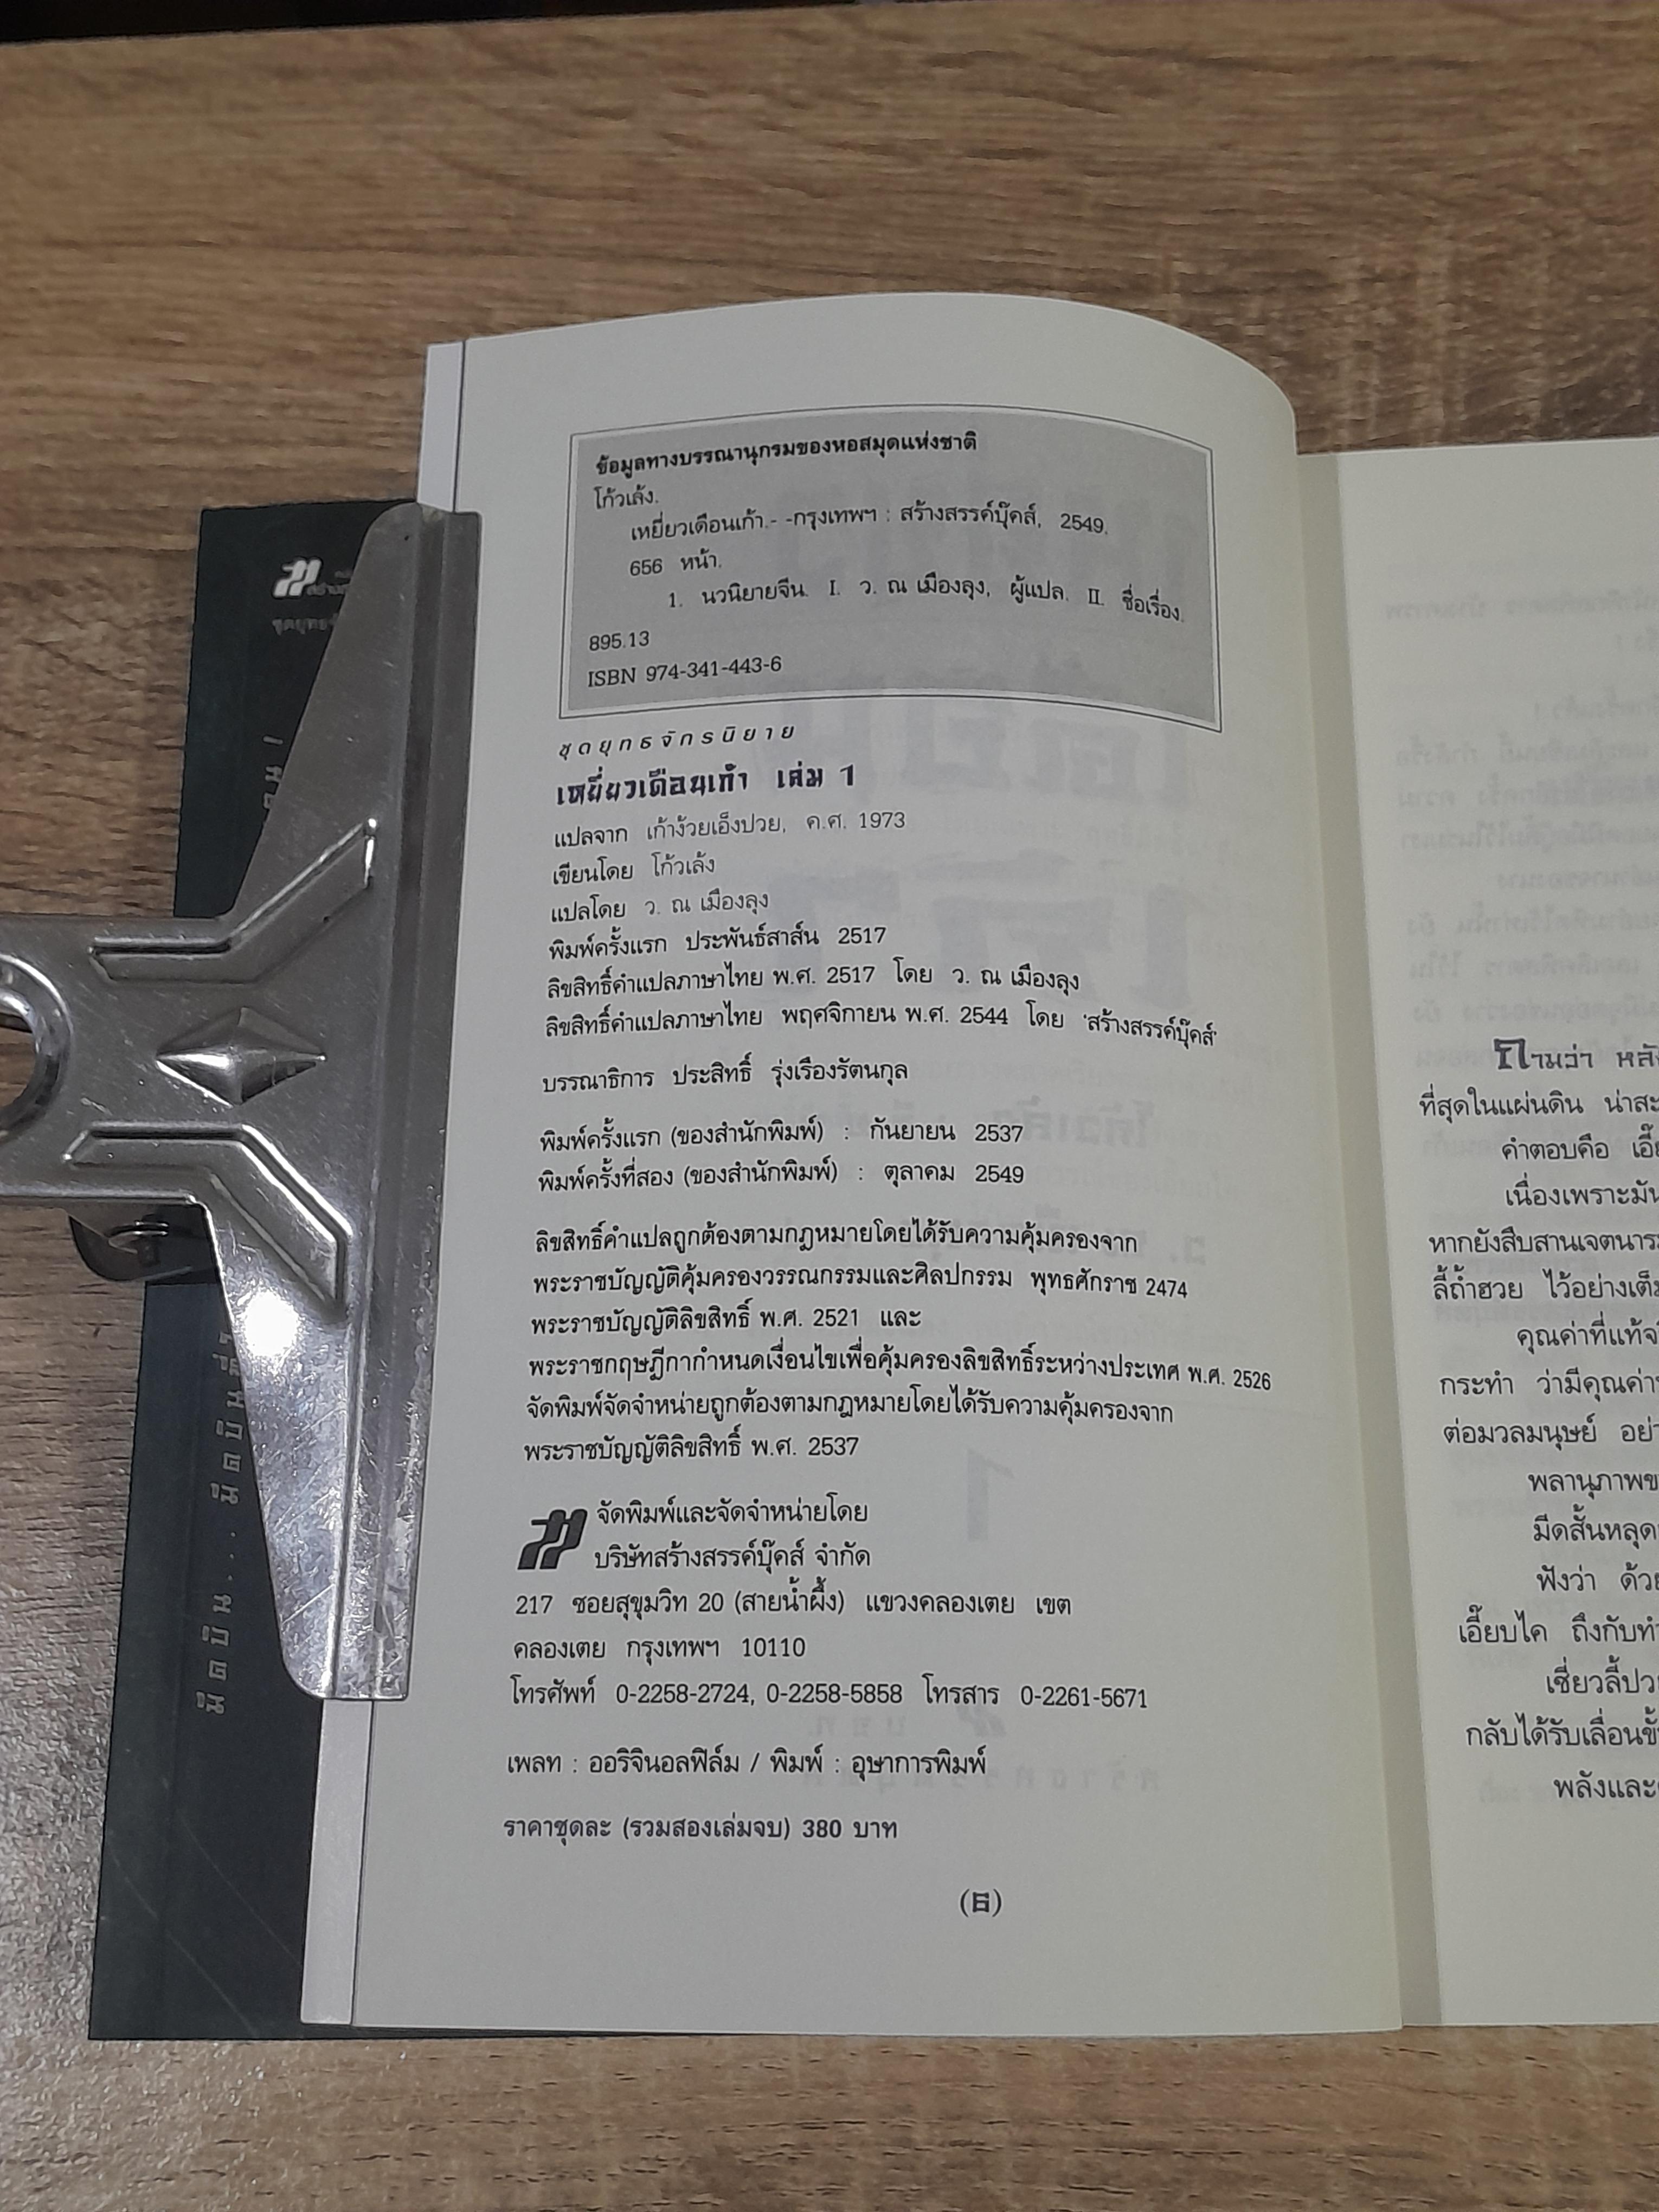 ข้อมูลทางบรรณานุกรมของหอสมุดแห่งชาติ
โก้วเล้ง.
เหยี่ยวเดือนเก้า.- -กรุงเทพฯ : สร้างสรรค์บุ๊คส์, 2549.
656 หน้า.
1. นวนิยายจีน. I. ว. ณ เมืองลุง, ผู้แปล. II. ชื่อเรื่อง.
895.13
ISBN 974-341-443-6
ชุดยุทธจักรนิยาย
เหยี่ยวเดือนเก้า เล่ม 1
แปลจาก เก้าง้วยเอ็งปวย, ค.ศ. 1973
เขียนโดย โก้วเล้ง
แปลโดย ว. ณ เมืองลุง
พิมพ์ครั้งแรก ประพันธ์สาส์น 2517
ลิขสิทธิ์คำแปลภาษาไทย พ.ศ. 2517 โดย ว. ณ เมืองลุง
ลิขสิทธิ์คำแปลภาษาไทย พฤศจิกายน พ.ศ. 2544 โดย 'สร้างสรรค์บุ๊คส์'
บรรณาธิการ ประสิทธิ์ รุ่งเรืองรัตนกุล
พิมพ์ครั้งแรก (ของสำนักพิมพ์) : กันยายน 2537
พิมพ์ครั้งที่สอง (ของสำนักพิมพ์) : ตุลาคม 2549
ลิขสิทธิ์คำแปลถูกต้องตามกฎหมายโดยได้รับความคุ้มครองจาก
พระราชบัญญัติคุ้มครองวรรณกรรมและศิลปกรรม พุทธศักราช 2474
พระราชบัญญัติลิขสิทธิ์ พ.ศ. 2521 และ
พระราชกฤษฎีกากำหนดเงื่อนไขเพื่อคุ้มครองลิขสิทธิ์ระหว่างประเทศ พ.ศ. 2526
จัดพิมพ์จัดจำหน่ายถูกต้องตามกฎหมายโดยได้รับความคุ้มครองจาก
พระราชบัญญัติลิขสิทธิ์ พ.ศ. 2537
จัดพิมพ์และจัดจำหน่ายโดย
บริษัทสร้างสรรค์บุ๊คส์ จำกัด
217 ซอยสุขุมวิท 20 (สายน้ำผึ้ง) แขวงคลองเตย เขต
คลองเตย กรุงเทพฯ 10110
โทรศัพท์ 0-2258-2724, 0-2258-5858 โทรสาร 0-2261-5671
เพลท : ออริจินอลฟิล์ม / พิมพ์ : อุษาการพิมพ์
ราคาชุดละ (รวมสองเล่มจบ) 380 บาท
(6)
ถามว่า หลัง
ที่สุดในแผ่นดิน น่าสะ
คำตอบคือ เอี๊ย
เนื่องเพราะมัน
หากยังสืบสานเจตนารม
ลี้ถ้ำฮวย ไว้อย่างเต็ม
คุณค่าที่แท้จริ
กระทำ ว่ามีคุณค่า
ต่อมวลมนุษย์ อย่า
พลานุภาพข
มีดสั้นหลุด
ฟังว่า ด้วย
เอี๊ยบไค ถึงกับทำ
เซี่ยวลี้ปวย
กลับได้รับเลื่อนขั้
พลังและ